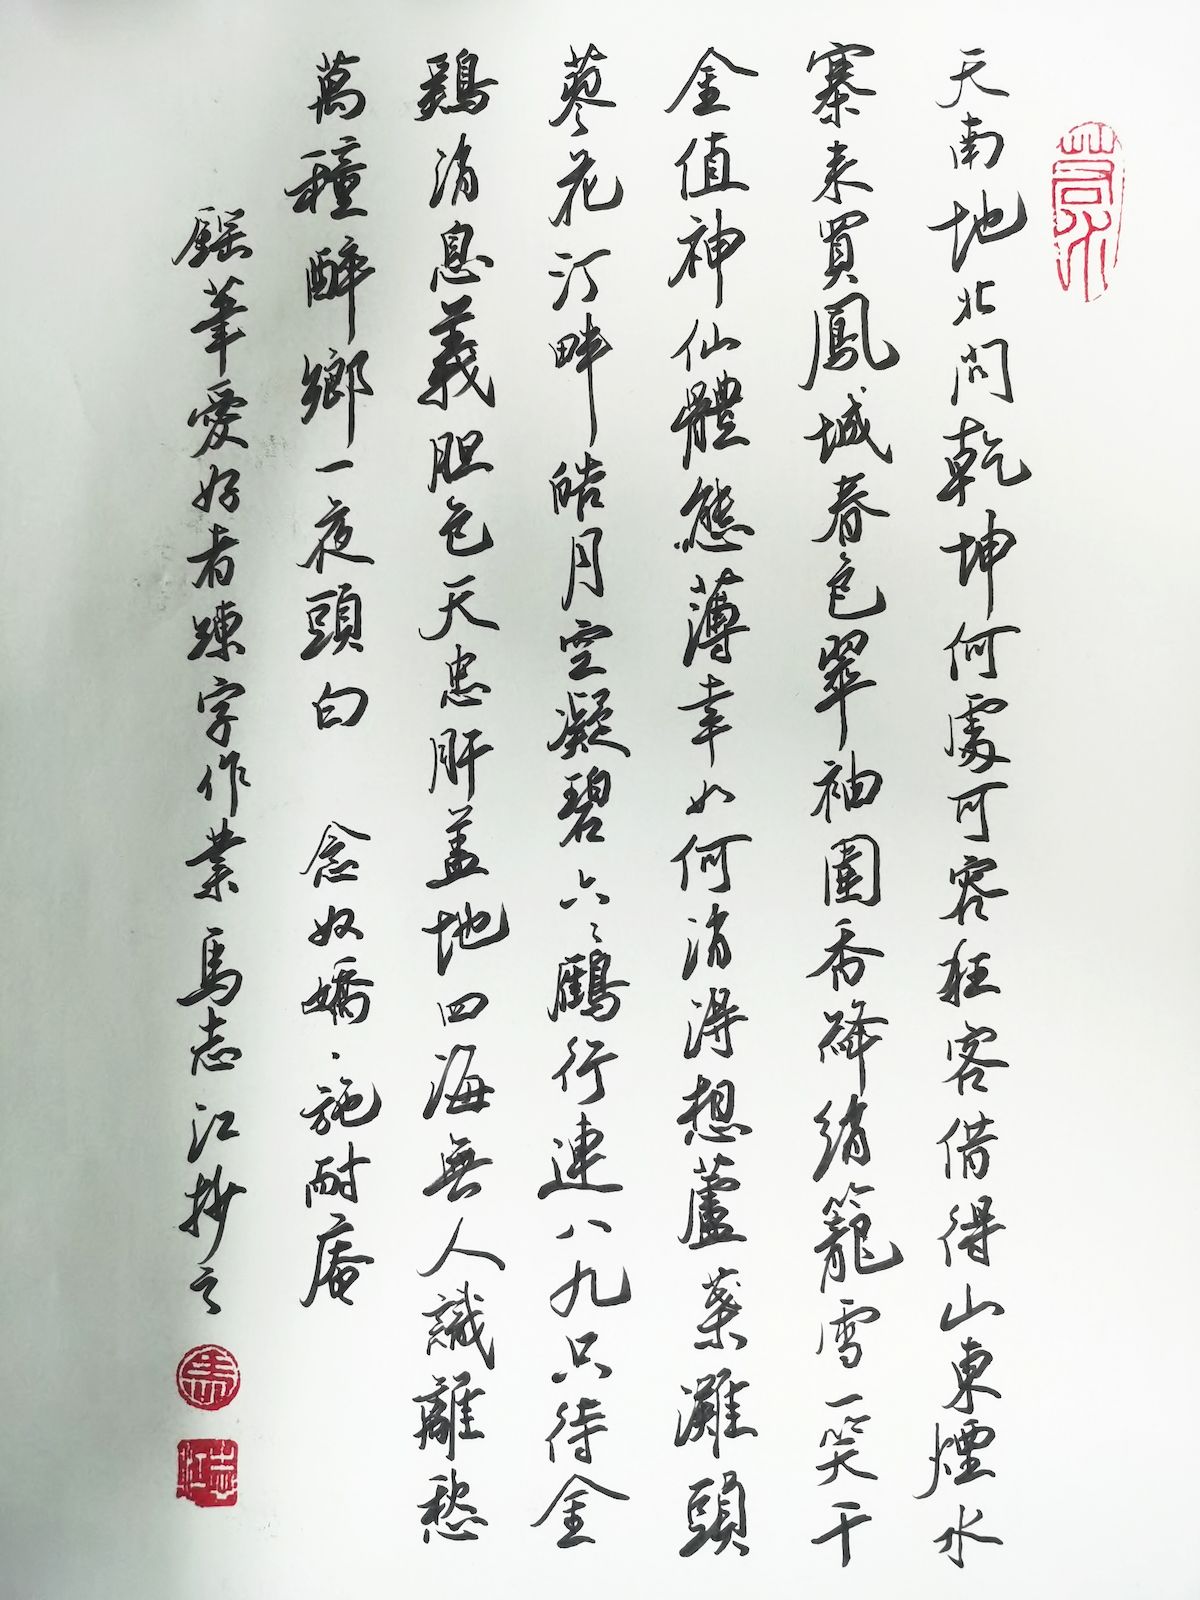 天南地北問乾坤何處可容狂客借得山東煙水
寨来買鳳城春色翠袖圍香絳綃籠雪一笑千
金值神仙體態薄幸如何消得想蘆葉灘頭
蓼花汀畔皓月空凝碧六六鴈行連八九只待金
鷄消息義胆包天忠肝盖地四海無人識離愁
萬種醉鄉一夜頭白 念奴嬌·施耐庵
筆愛好者練字作業馬志江抄之
馬
志江